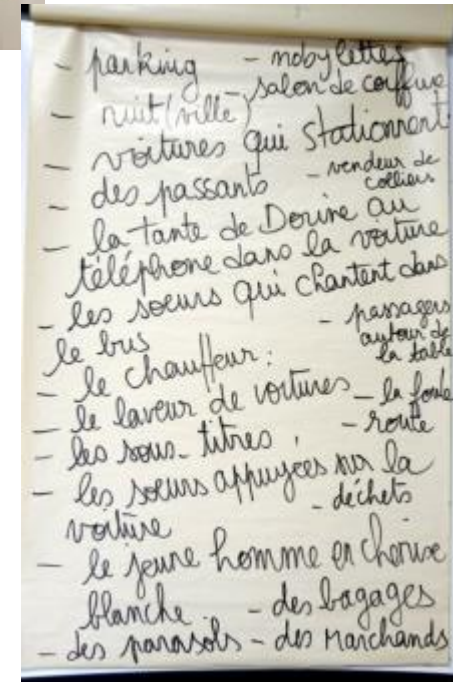 - parking - mobylettes
- nuit (ville) - salon de coiffure
- voitures qui stationnent
- des passants - vendeur de colliers
- la tante de Dorine au
téléphone dans la voiture
- les soeurs qui chantent dans
le bus - passagers autour de la table
- le chauffeur :
- le laveur de voitures - la foule
- les sous-titres , - route
- les soeurs appuyées sur la
voiture - déchets
- le jeune homme en chemise
blanche. - des bagages
- des parasols - des marchands